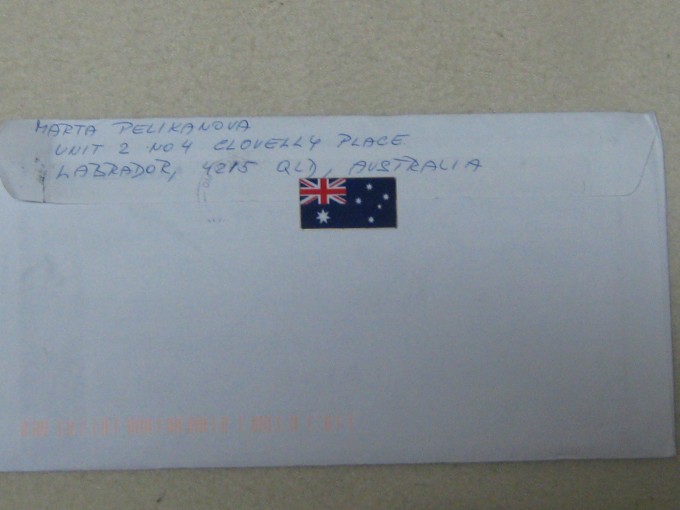 MARTA PELIKANOVA
UNIT 2 NO4 CLOVELLY PLACE
LABRADOR, 4215 QLD, AUSTRALIA